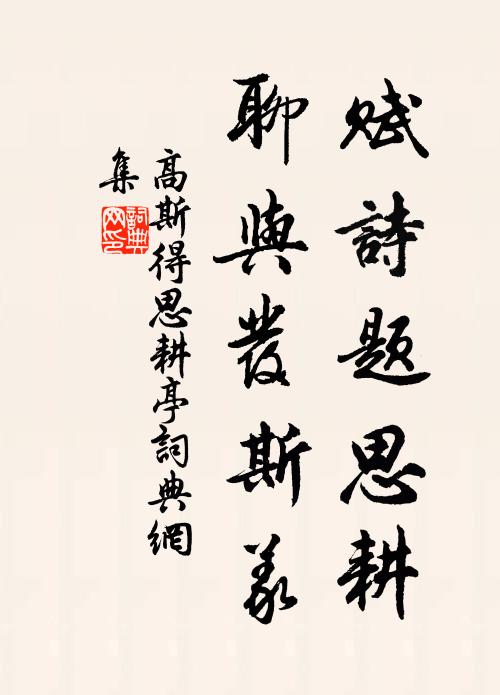 賦詩題思耕
聊與發斯義
高斯得思耕亭詞典網
集
詞典
网印